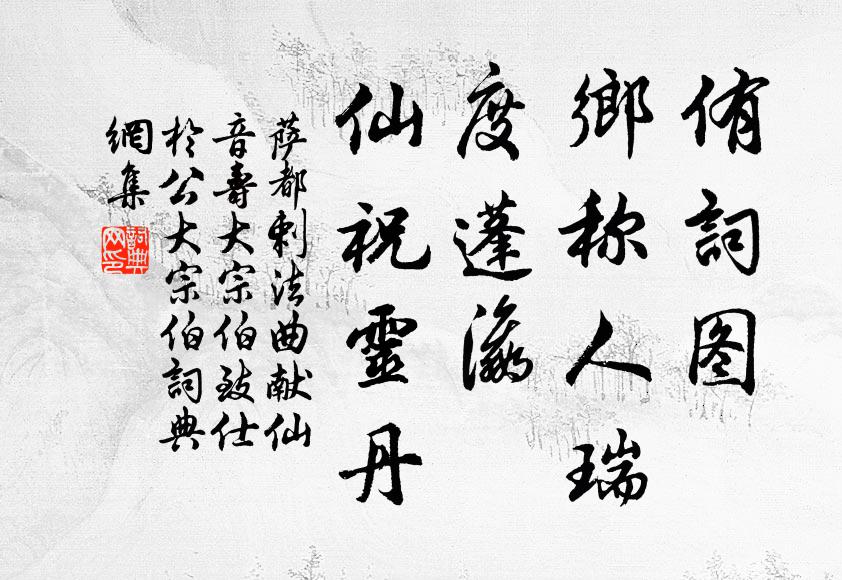 侑詞图
鄉称人瑞
度蓬瀛
仙祝靈丹
萨都剌法曲献仙
音壽大宗伯致仕
於公大宗伯詞典
網集
詞典网印